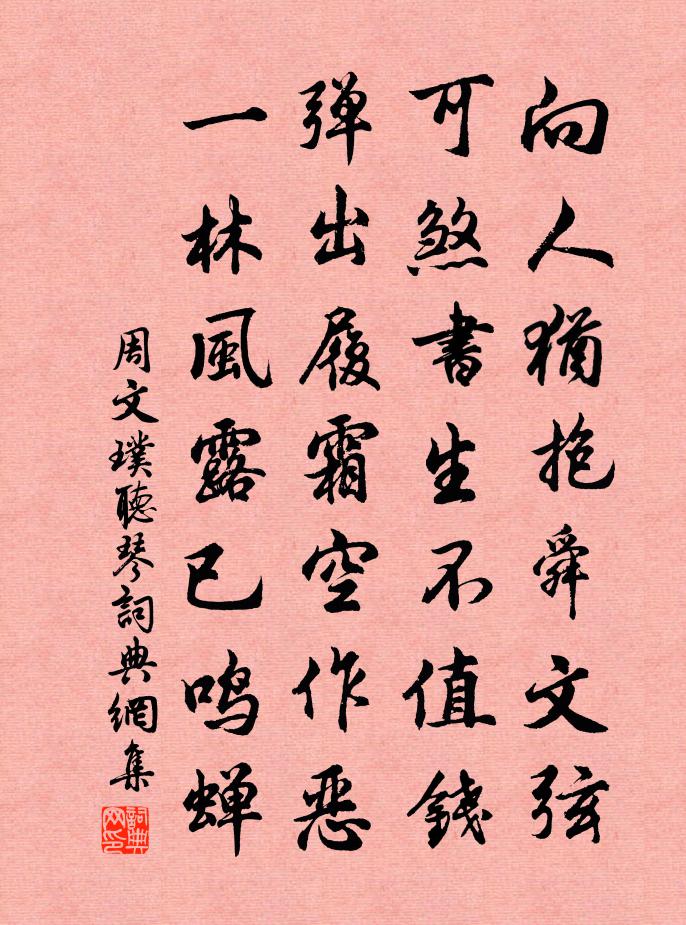 向人猶抱舜文弦
可煞書生不值錢
弹出履霜空作惡
一林風露已鸣蝉
周文璞聽琴詞典網集
詞典网印